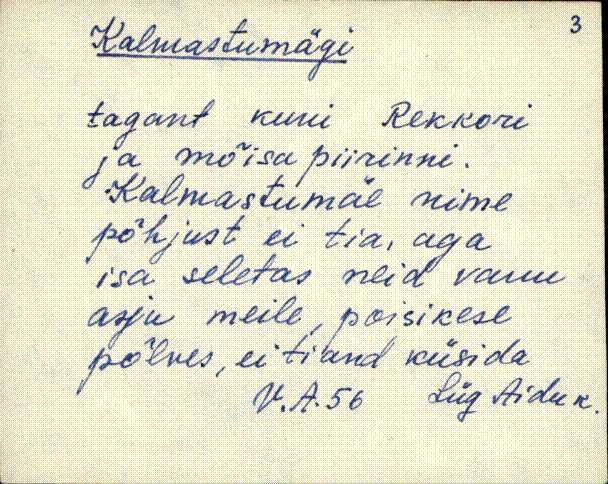 3
Kalmastumägi
tagant kuni Rekkori
ja mõisa piirinni.
Kalmastumäe nime
põhjust ei tia, aga
isa seletas neid vanu
asju meile, poisikese
põlves, ei tiand küsida
V.A. 56 Lüg Aidu k.